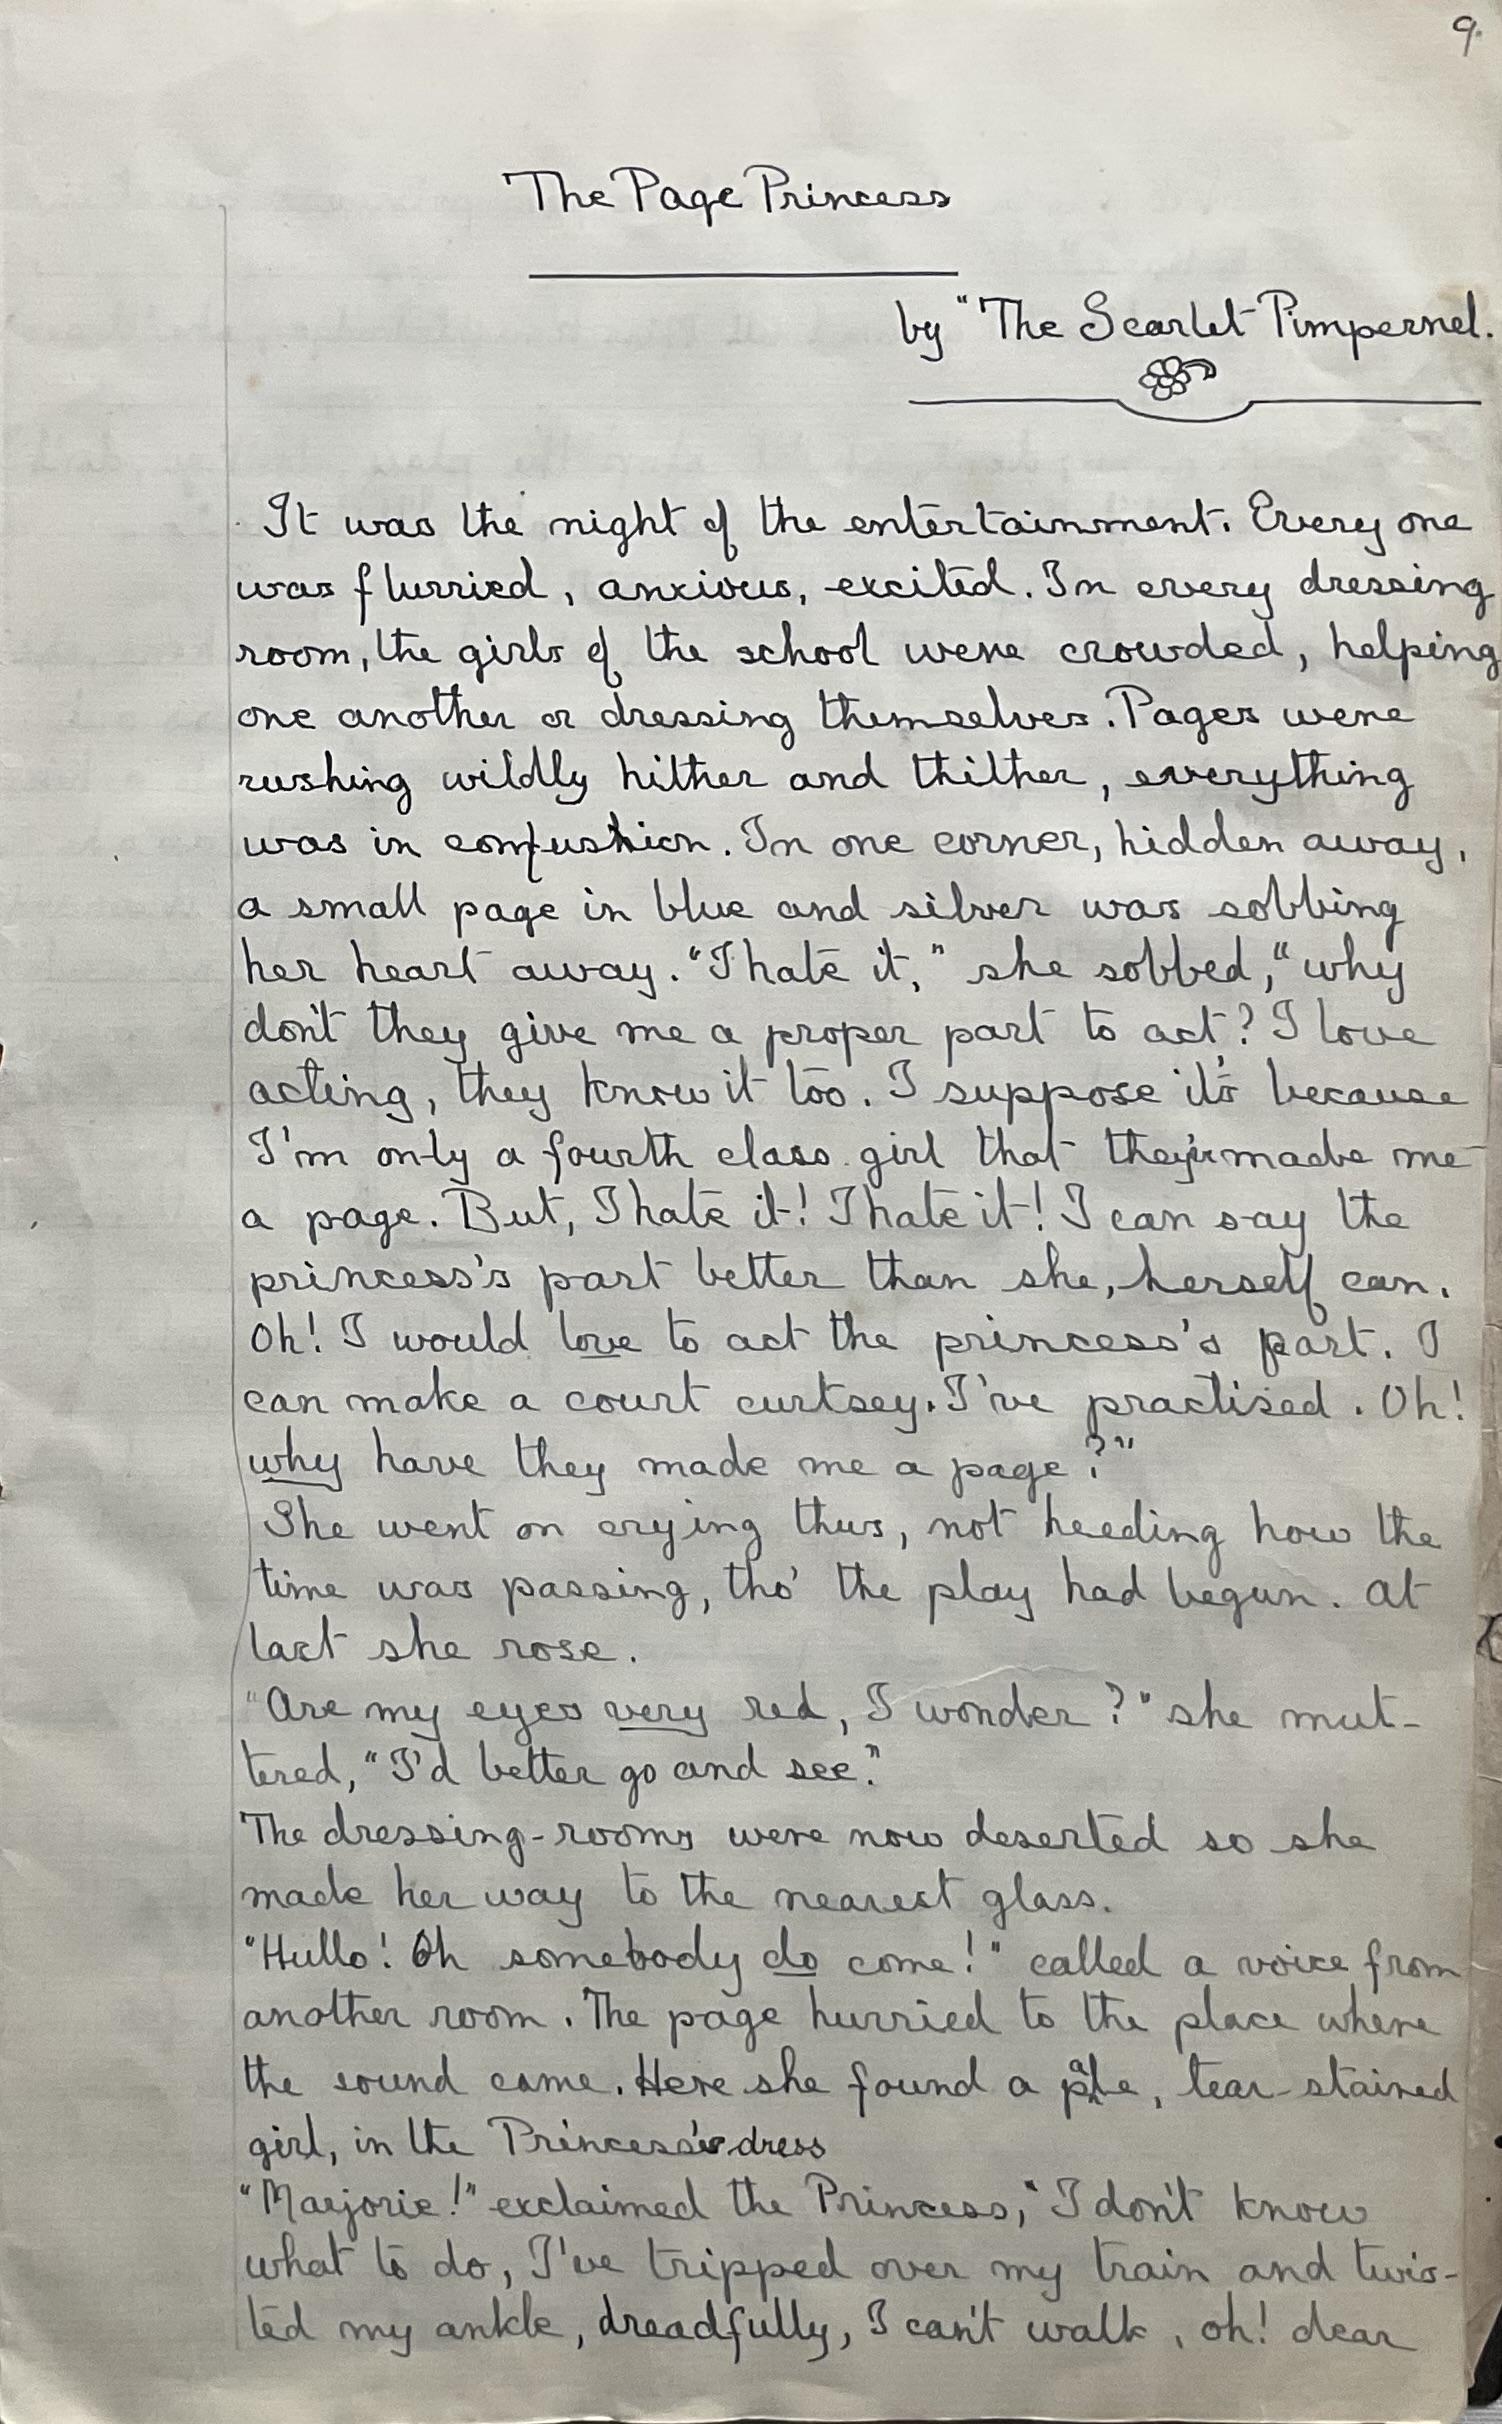 9.
The Page Princess
by "The Scarlet Pimpernel.
It was the night of the entertainment. Every one
was flurried, anxious, excited. In every dressing
room, the girls of the school were crowded, helping
one another or dressing themselves. Pages were
rushing wildly hither and thither, everything
was in confushion. In one corner, hidden away,
a small page in blue and silver was sobbing
her heart away. "I hate it," she sobbed, "why
don't they give me a proper part to act? I love
acting, they know it too. I suppose it's because
I'm only a fourth class girl that they've made me
a page. But, I hate it! I hate it! I can say the
princess's part better than she, herself can.
Oh! I would love to act the princess's part. I
can make a court curtsey. I've practised. Oh!
why have they made me a page?"
She went on crying thus, not heeding how the
time was passing, tho' the play had begun. At
last she rose.
"Are my eyes very red, I wonder?" she mut-
tered, "I'd better go and see."
The dressing-rooms were now deserted so she
made her way to the nearest glass.
"Hullo! Oh somebody do come!" called a voice from
another room. The page hurried to the place where
the sound came. Here she found a pale, tear-stained
girl, in the Princess's dress
"Marjorie!" exclaimed the Princess, "I don't know
what to do, I've tripped over my train and twis-
ted my ankle, dreadfully, I can't walk, oh! dear